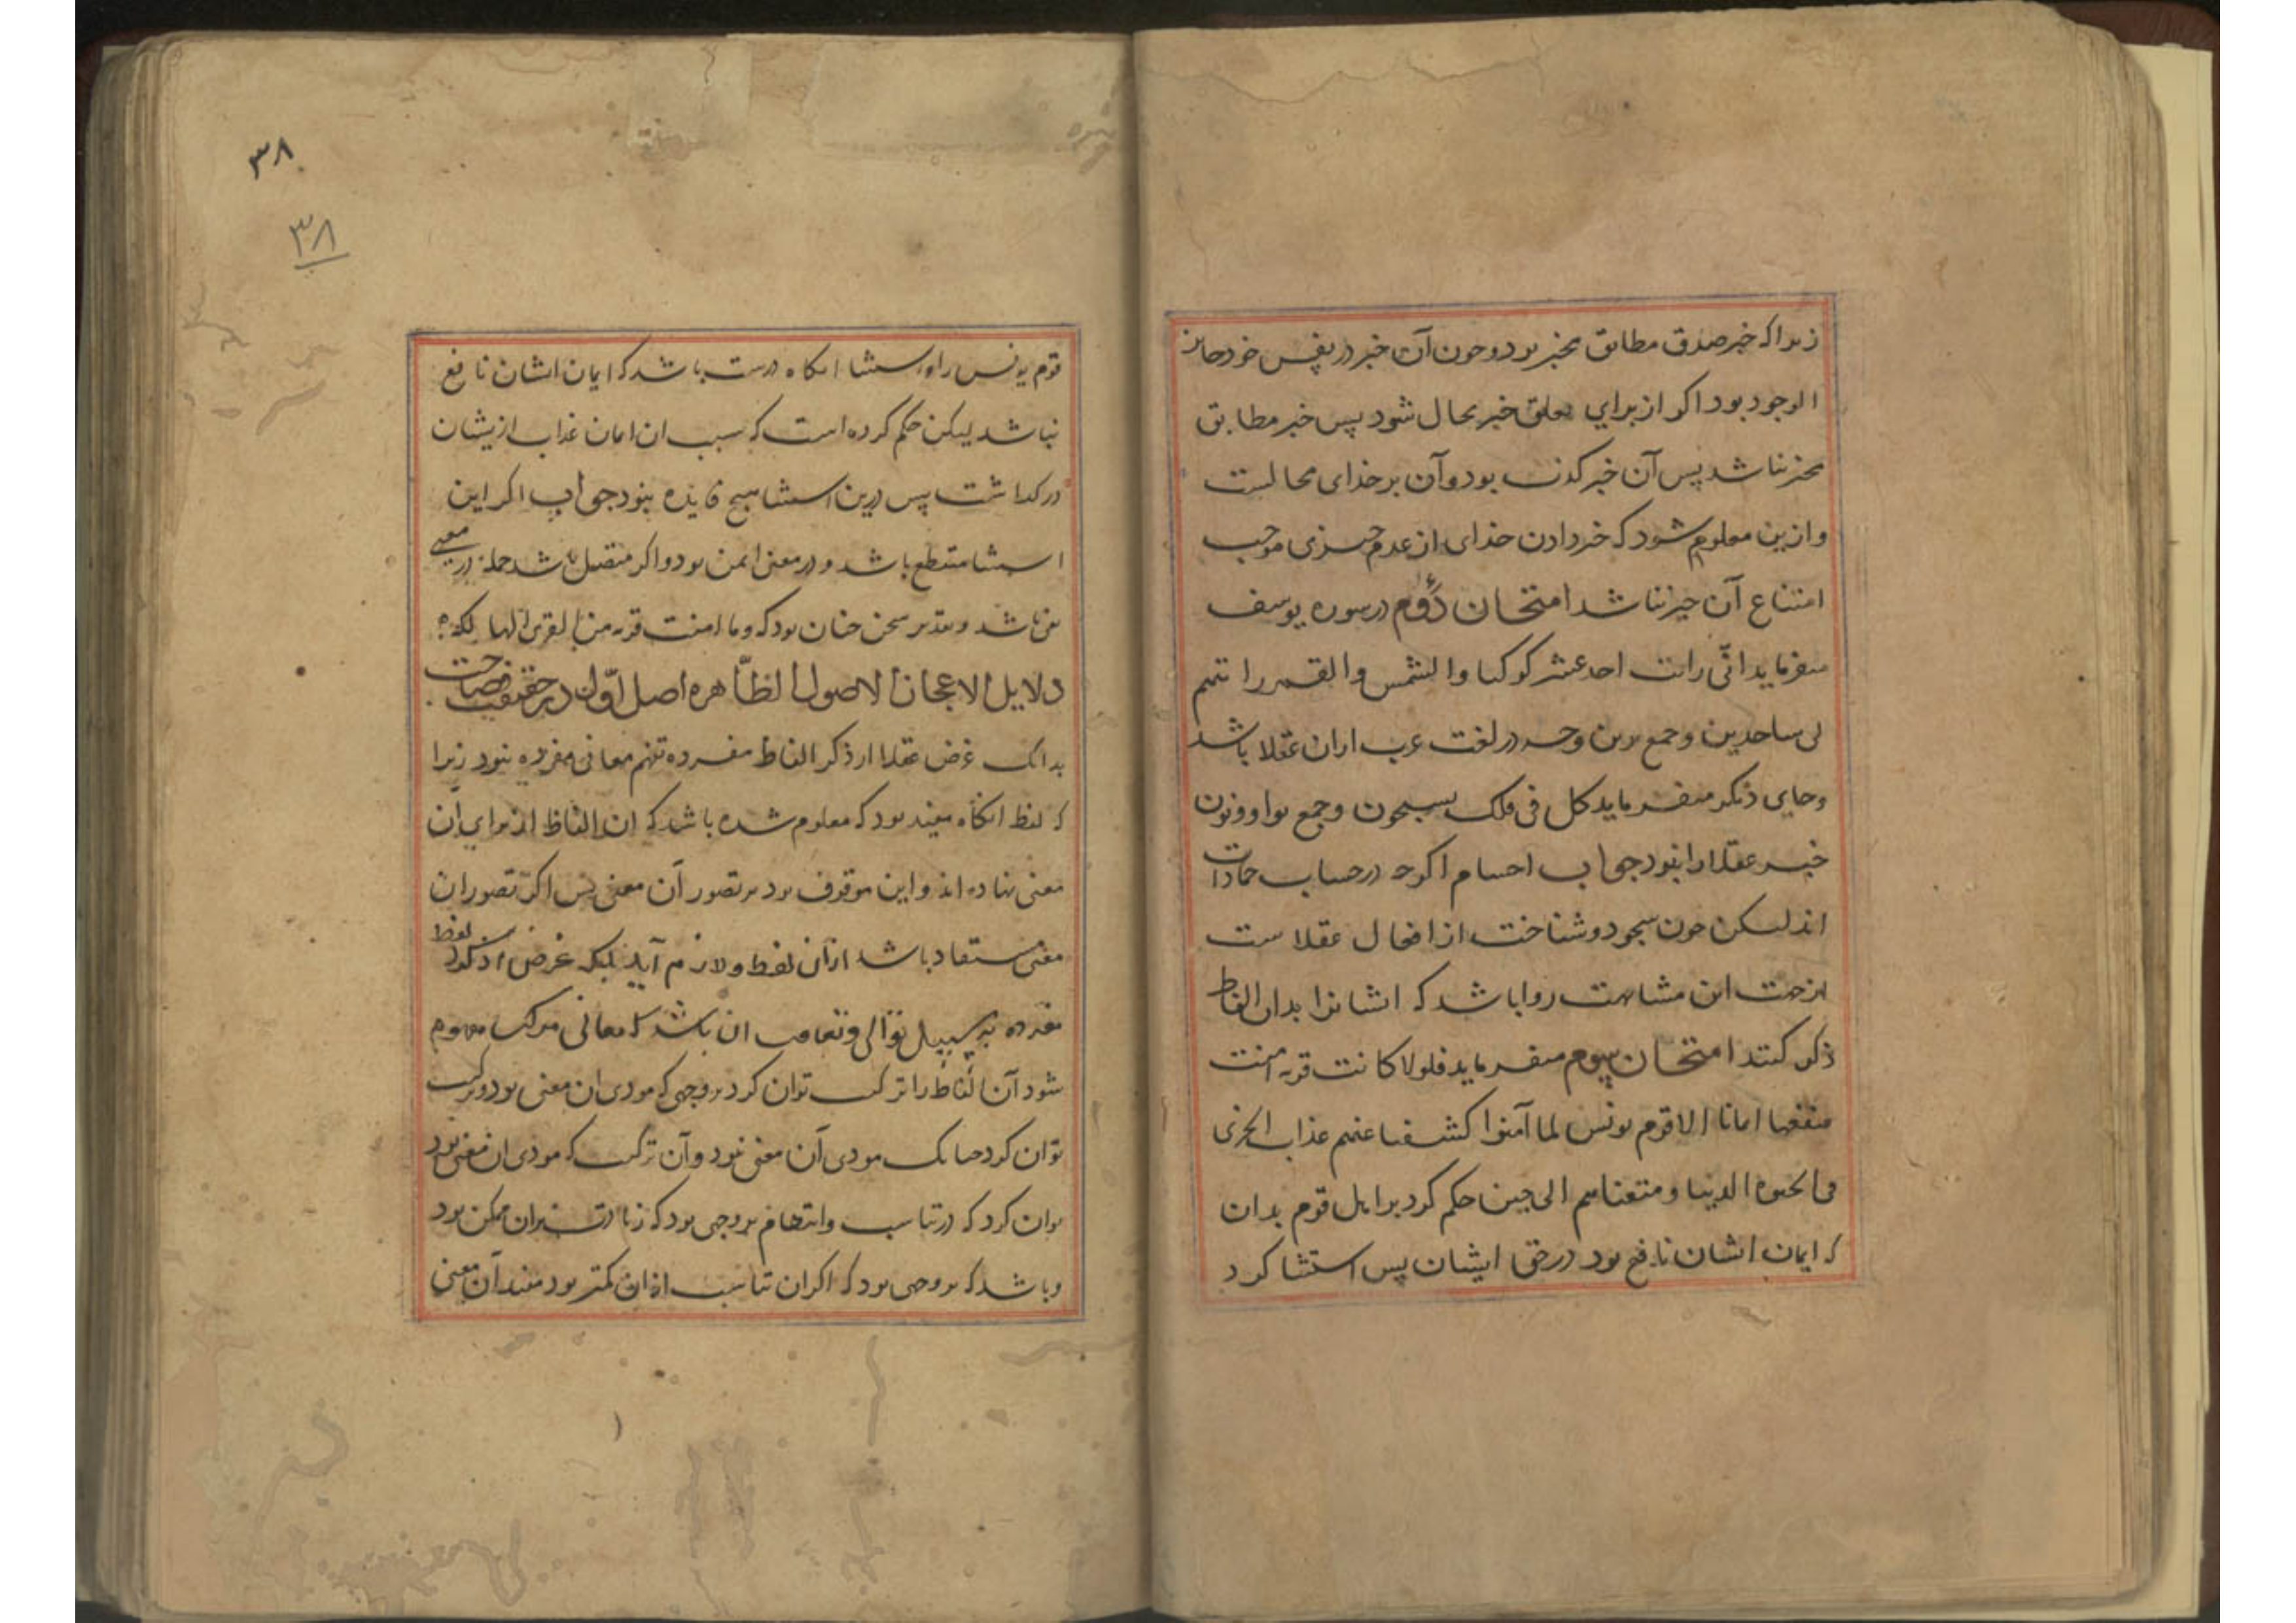 زیراکه خبر صدق مطابق مخبر بود و چون آن خبر در نفس خود جایز
الوجود بود اکر از برای تعلق خبر محال شود پس خبر مطابق
مخبر نباشد پس آن خبر کذب بود و آن بر خدای محالست
و ازین معلوم شود که خبر دادن خدای از عدم چیزی موجب
امتناع آن چیز نباشد امتحان دوم در سوره یوسف
میفرماید انّی رایت احد عشر کوکبا والشمس والقمر رایتهم
لی ساجدین و جمع برین وجه در لغت عرب ازان عقلا باشد
و جای دیکر میفرماید کل فی فلک یسبحون و جمع بواو و نون
خبر عقلا را نبود جواب اجسام اکرچه در حساب جمادات
اند لیکن چون سجود و شناخت از افعال عقلاست
از جهت این مشابهت روا باشد که ایشانرا بدان الفاظ
ذکر کنند امتحان سیوم میفرماید فلولا کانت قریه امنت
فنفعها ایمانها الا قوم یونس لما آمنوا کشفنا عنهم عذاب الخزی
فی الحیوه الدنیا و متعناهم الی حین حکم کرد بر اهل قوم بدان
که ایمان ایشان نافع بود در حق ایشان پس استثنا کرد
۳۸
۳۸
قوم یونس را و استثنا آنکاه درست باشد که ایمان ایشان نافع
نباشد لیکن حکم کرده است که سبب ان ایمان عذاب ازیشان
درکذاشت پس درین استثنا هیچ فایده نبود جواب اکر این
استثنا منقطع باشد و در معنی ایمن بود و اکر متصل باشد جمله در معنی
نفی باشد و تقدیر سخن چنان بود که وما امنت قریه من القری
دلایل الاعجاز الاصول الظاهره اصل اوّل در حقیقت فصاحت
بدانک غرض عقلا از ذکر الفاظ مفرده تفهم معانی مفرده نبود زیرا
که لفظ آنکاه مفید بود که معلوم شده باشد که ان الفاظ از برای آن
معنی نهاده اند و این موقوف بود بر تصور آن معنی پس اکر تصور ان
معنی مستفاد باشد ازان لفظ و لازم آید بلکه غرض از ذکر لفظ
مفرده بر سبیل توالی و تعاقب ان باشد که معانی مرکب مفهوم
شود آن الفاظ را ترکیب توان کرد بروجهی که مودی ان معنی بود و ترکیب
توان کرد چنانک مودی آن معنی نبود و آن ترکیب که مودی ان معنی بود
توان کرد که در تناسب و انتظام بروجهی بود که زیادت بران ممکن بود
و باشد که بروجهی بود که اکر ان تناسب ازان کمتر بود مفید آن معنی